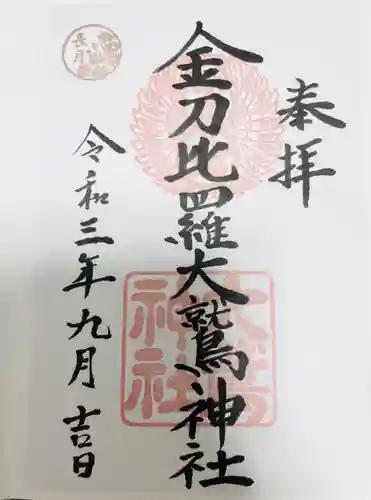 奉拝
金刀比羅大鷲神社
令和三年九月吉日
長月
大鷲
神社